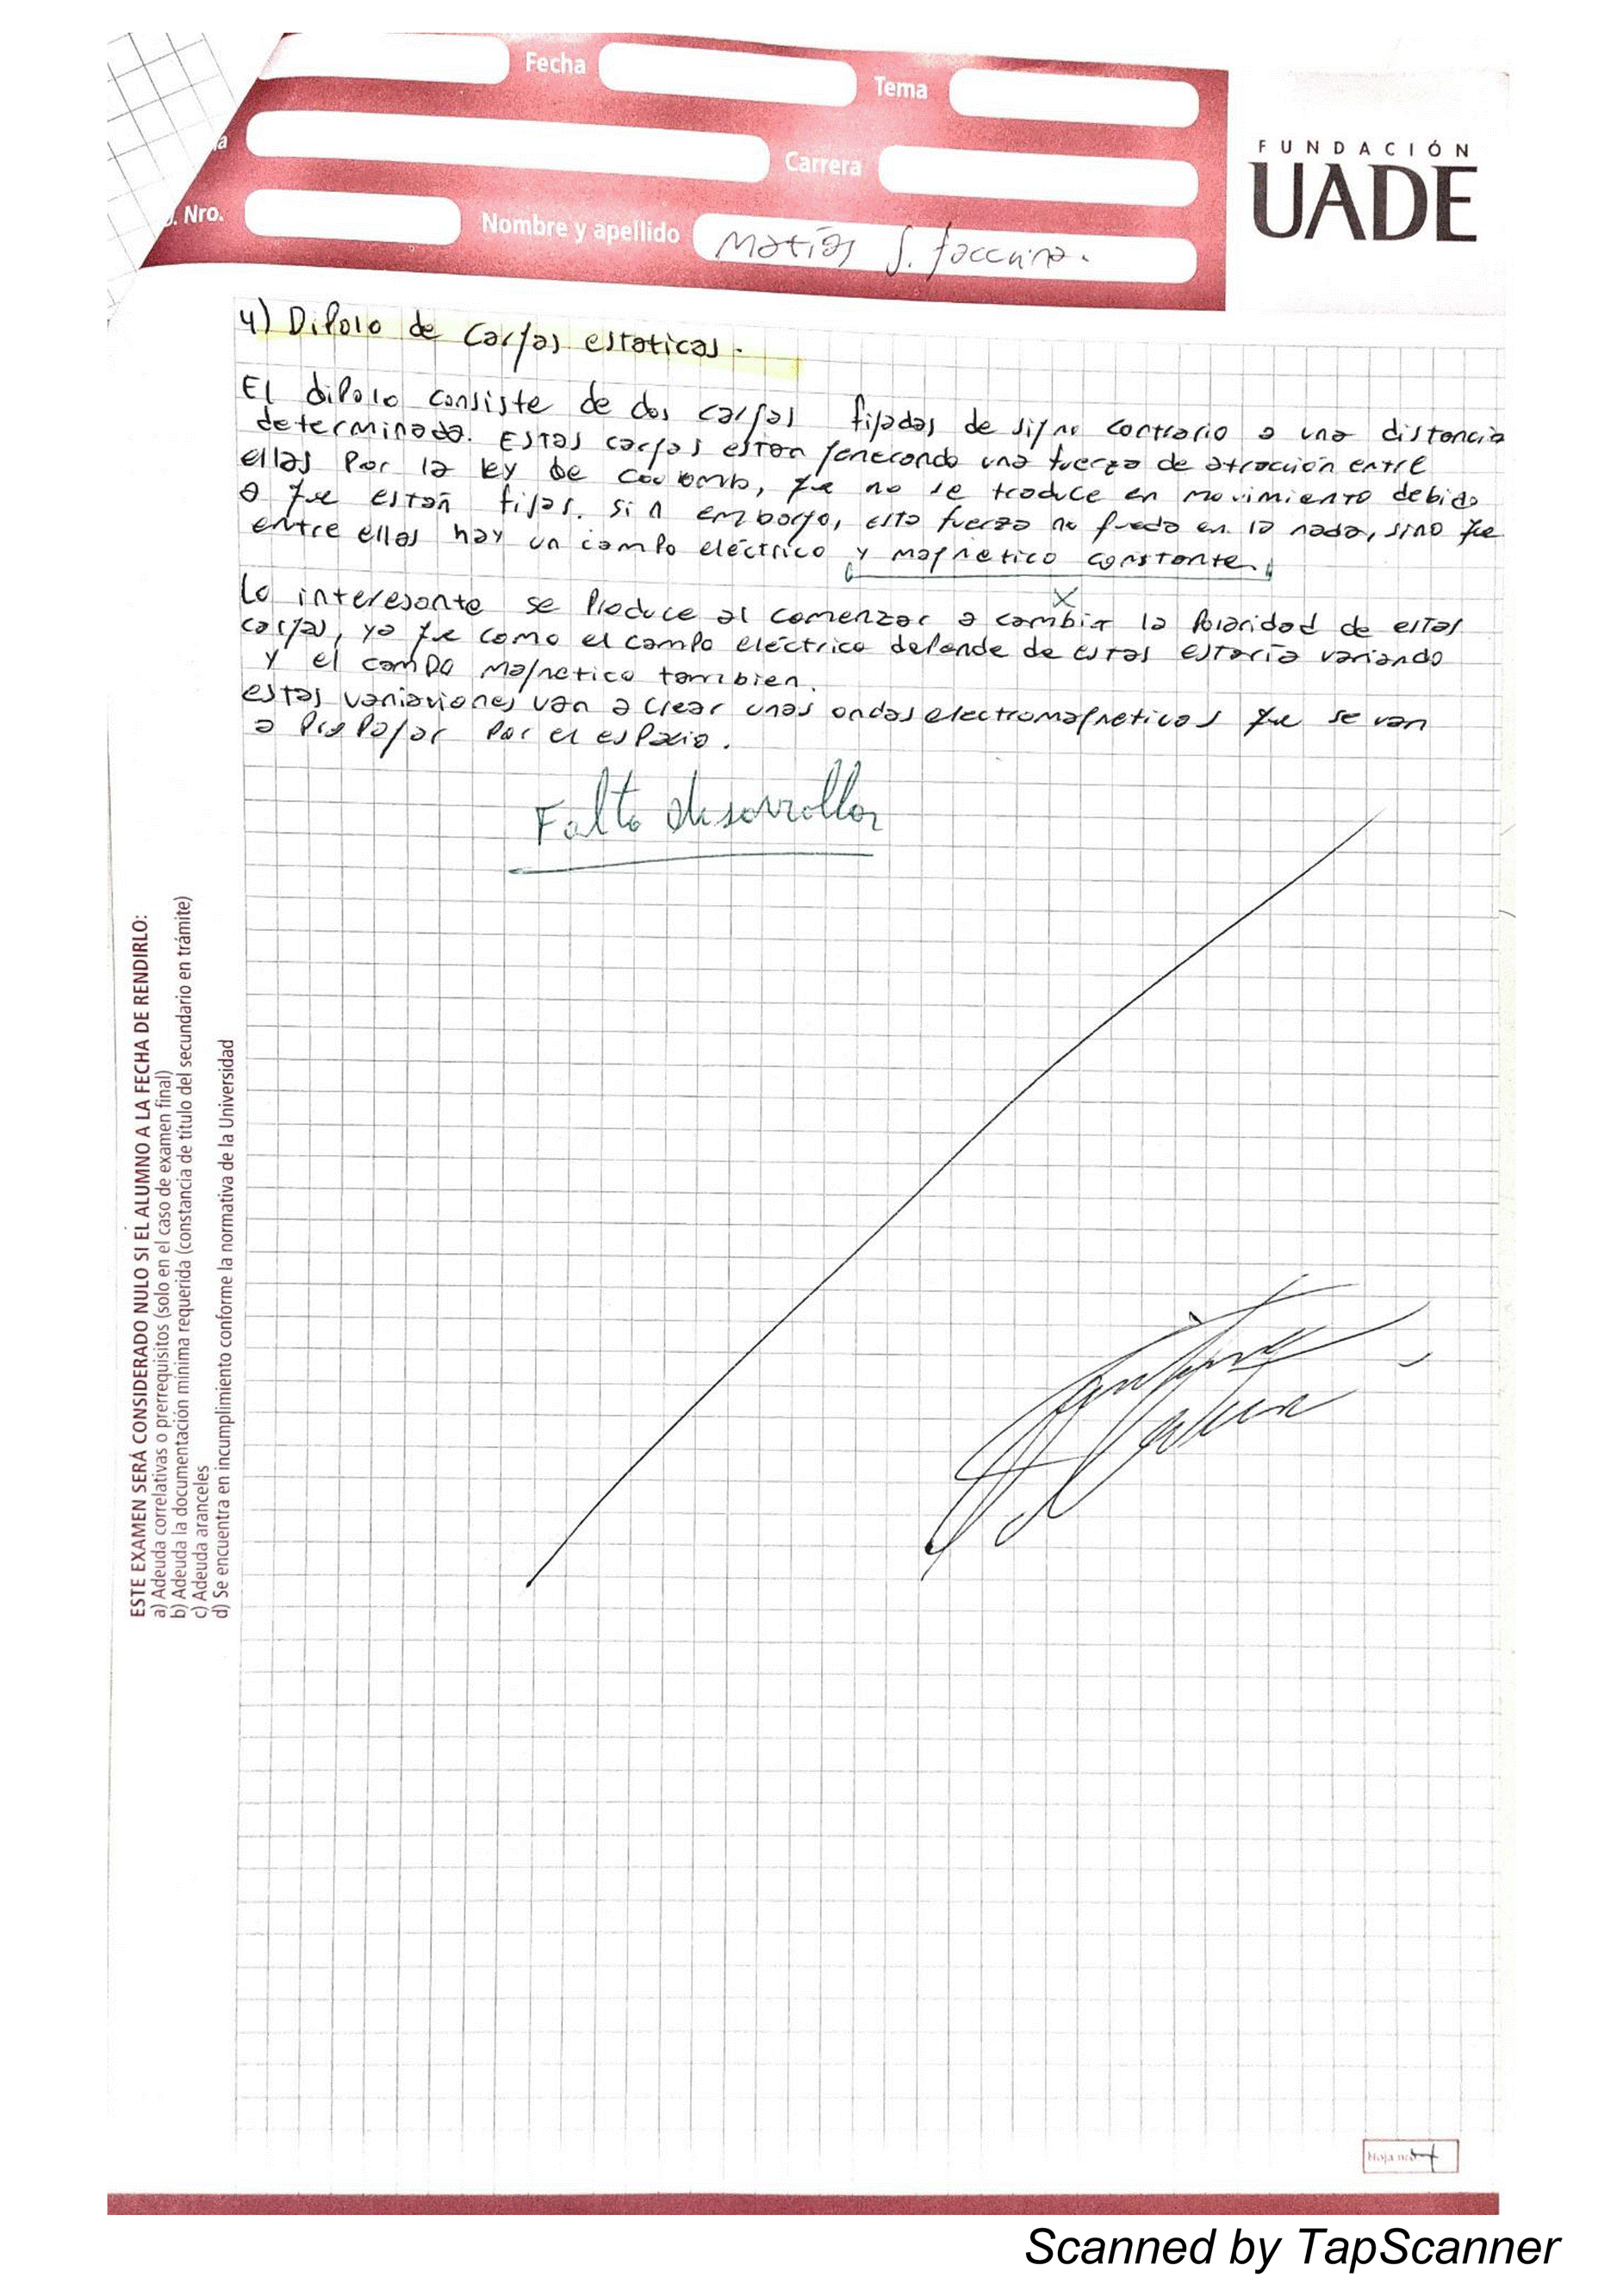 Fecha
Tema
Carrera
Nro.
Nombre y apellido Matías S. Facchina.
FUNDACIÓN
UADE
4) Dipolo de cargas estaticas.
El dipolo consiste de dos cargas fijadas de signo contrario a una distancia
determinada. Estas cargas estan generando una fuerza de atracción entre
ellas por la ley de Coulomb, que no se traduce en movimiento debido
a que están fijas. Sin embargo, esta fuerza no queda en la nada, sino que
entre ellas hay un campo eléctrico y magnetico constante.
X
Lo interesante se produce al comenzar a cambiar la polaridad de estas
cargas, ya que como el campo eléctrico depende de estas estaría variando
y el campo magnetico tambien.
estas variaciones van a crear unas ondas electromagneticas que se van
a propagar por el espacio.
Falta desarrollar
ESTE EXAMEN SERÁ CONSIDERADO NULO SI EL ALUMNO A LA FECHA DE RENDIRLO:
a) Adeuda correlativas o prerrequisitos (solo en el caso de examen final)
b) Adeuda la documentación mínima requerida (constancia de título del secundario en trámite)
c) Adeuda aranceles
d) Se encuentra en incumplimiento conforme la normativa de la Universidad
Hoja nro.
Scanned by TapScanner